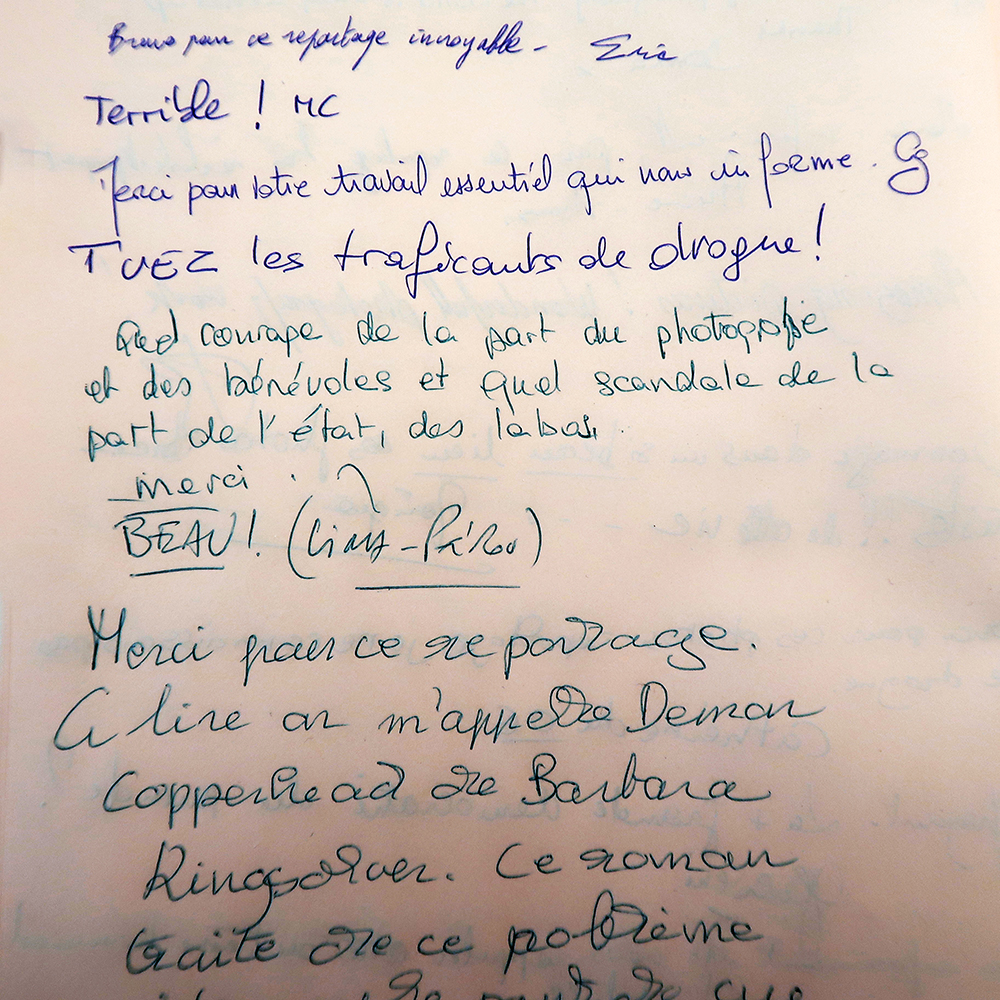 Bravo pour ce reportage incroyable - Eric
Terrible ! MC
Merci pour votre travail essentiel qui nous informe.
TUEZ les traficants de drogue !
Quel courage de la part du photographe
et des bénévoles et quel scandale de la
part de l'état, des labos.
merci.
BEAU ! (Lima - Pérou)
Merci pour ce reportage.
A lire on m'appelle Demon
Copperhead de Barbara
Kingsolver. Ce roman
traite de ce poblème